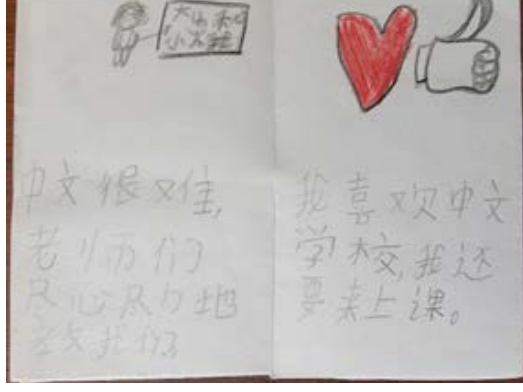 大山和
小
中文很难,
老师们
尽心尽力地
教我们
我喜欢中文
学校,我还
要来上课。